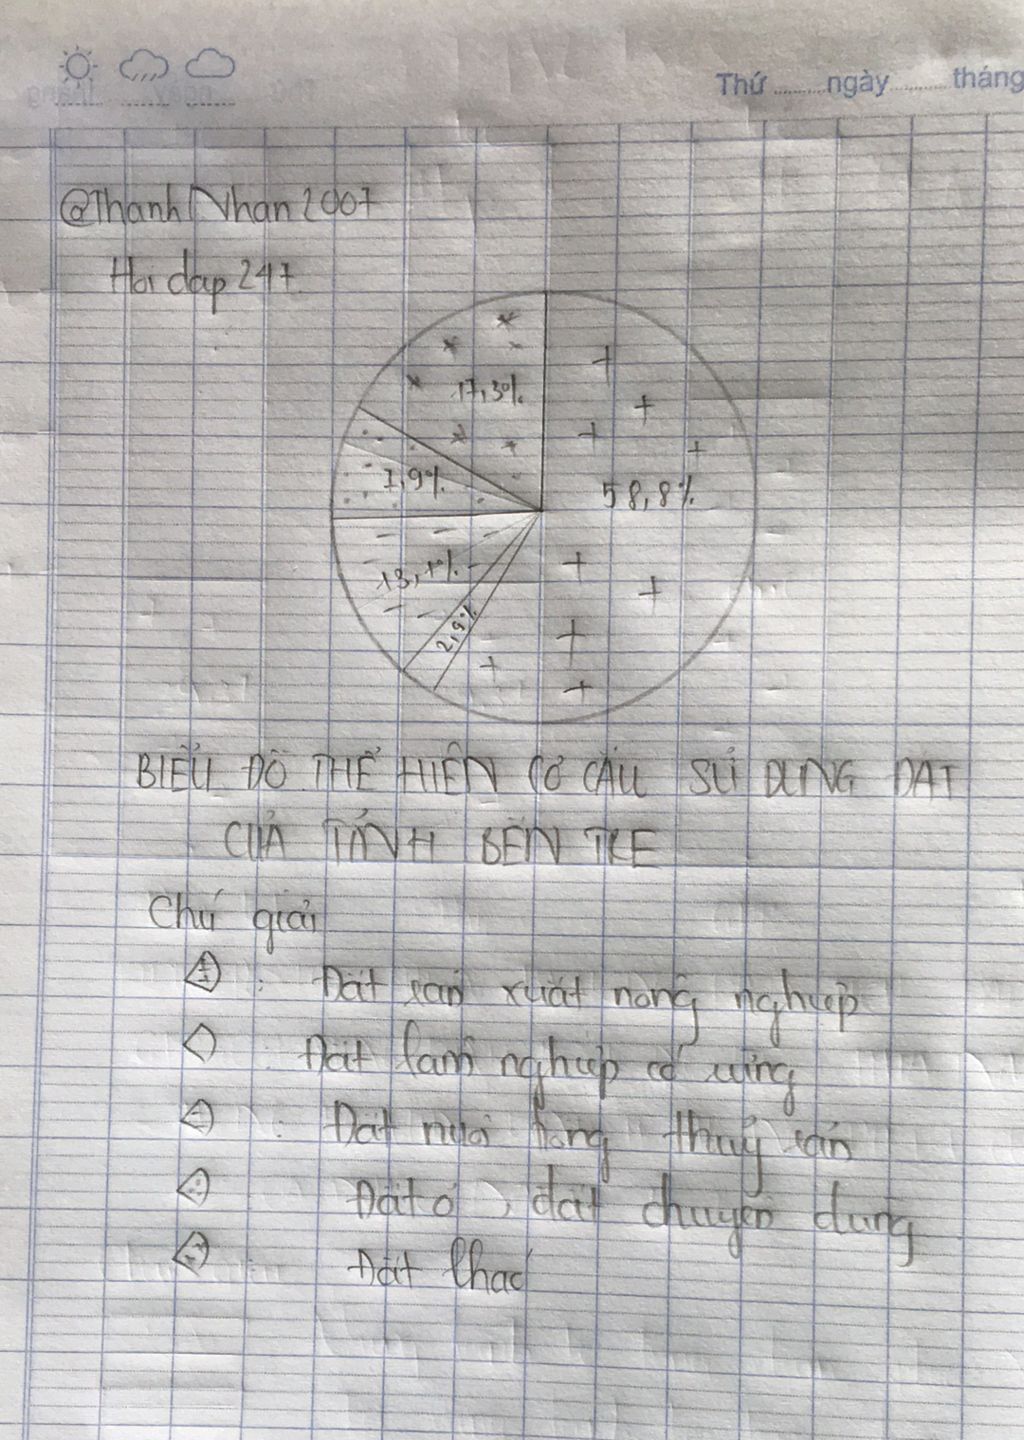 Thứ ........ngày..........tháng
@Thanh Nhan 2007
Hoi dap 247
17,3%
7,9%
58,8%
13,1%
2,9%
BIỂU ĐỒ THỂ HIỆN CƠ CẤU SỬ DỤNG ĐẤT
CỦA TỈNH BẾN TRE
Chú giải
: Đất sản xuất nông nghiệp
: Đất lâm nghiệp có rừng
: Đất nuôi trồng thuỷ sản
Đất ở, đất chuyên dùng
Đất khác